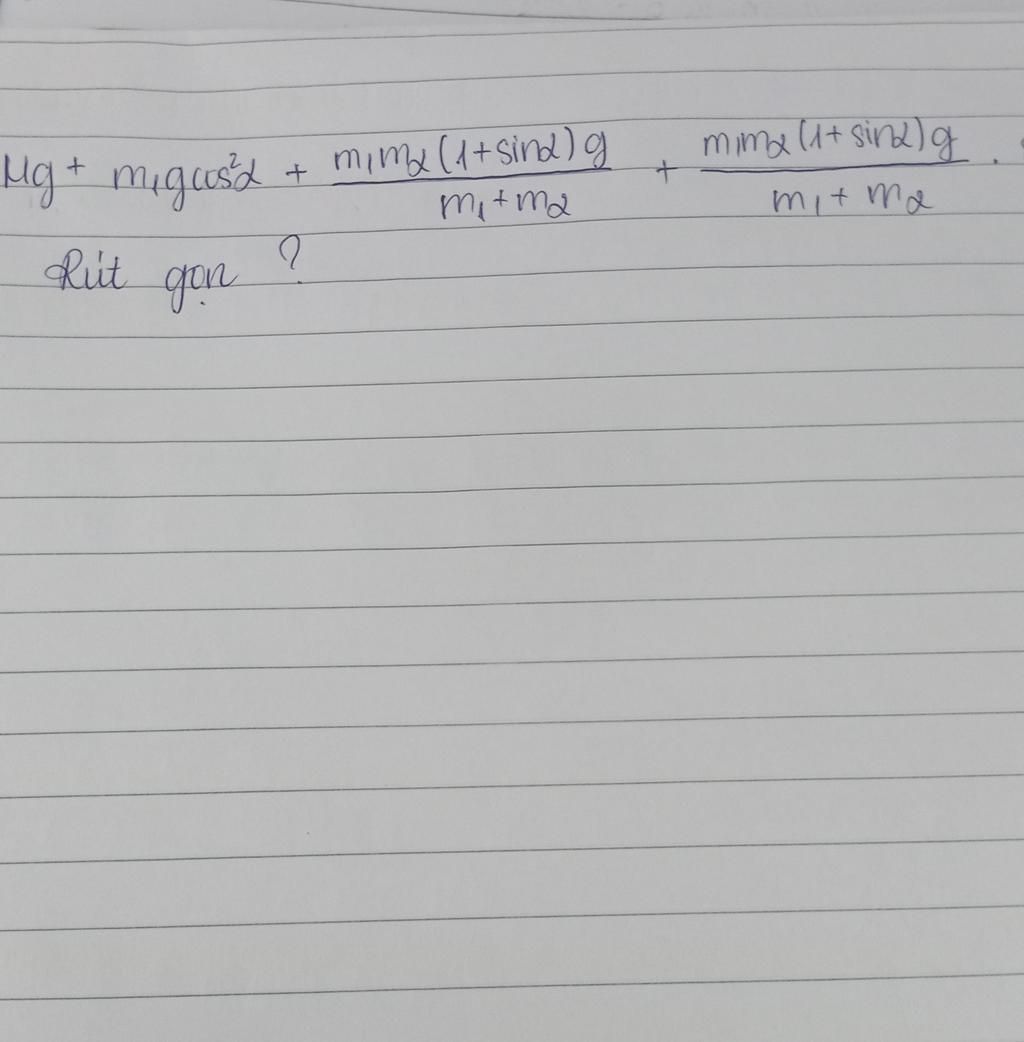 Mg + m₁gcos²α + m₁m₂(1+sinα)g / m₁+m₂ + m₁m₂(1+sinα)g / m₁+m₂ .
Rút gọn ?